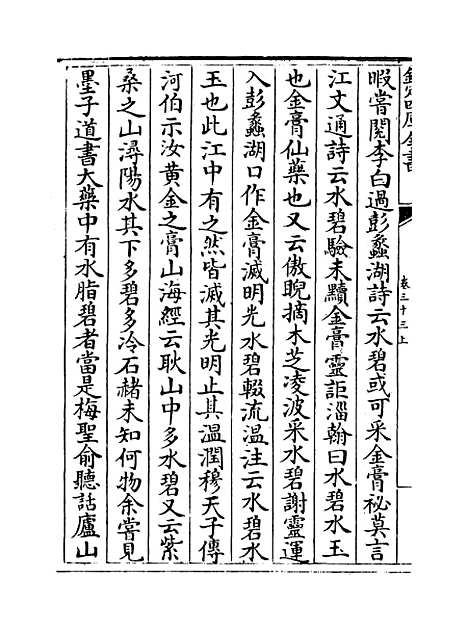 欽定四庫全書
卷三十三上
暇嘗閱李白過彭蠡湖詩云水碧或可采金膏祕莫言
江文通詩云水碧驗未黷金膏靈詎淄翰曰水碧水玉
也金膏仙藥也又云傲睨摘木芝凌波采水碧謝靈運
入彭蠡湖口作金膏滅明光水碧輟流溫注云水碧水
玉也此江中有之然皆滅其光明止其溫潤穆天子傳
河伯示汝黃金之膏山海經云耿山中多水碧又云紫
桑之山潯陽水其下多碧多冷石赭未知何物余嘗見
墨子道書大藥中有水脂碧者當是梅聖俞聽話廬山